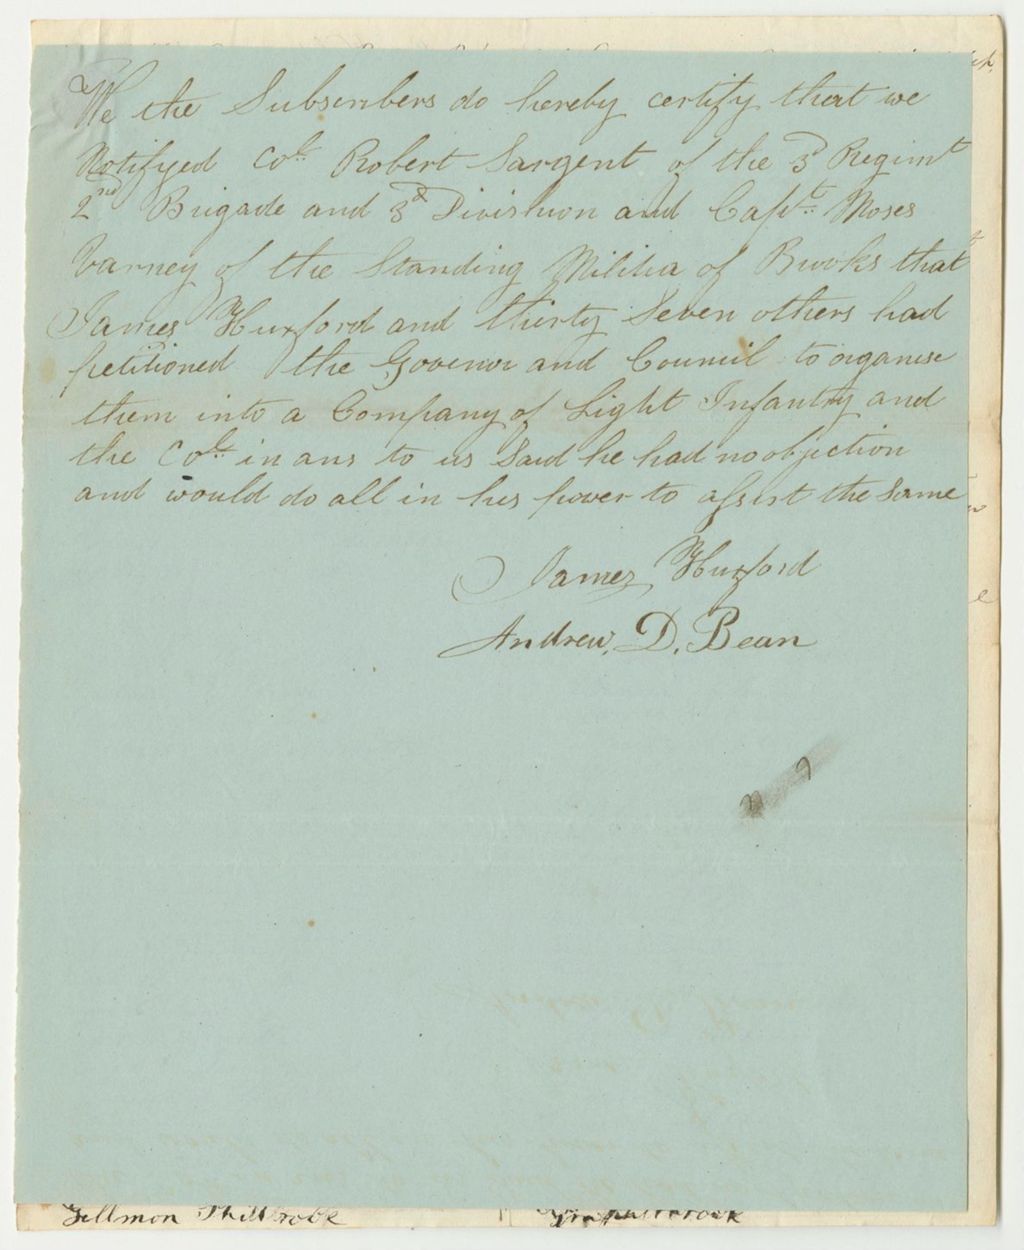 We the Subscribers do hereby certify that we
Notifyed Col. Robert Sargent of the 3d Regimt
2nd Brigade and 3d Division and Capt. Moses
Varney of the Standing Militia of Brooks that
James Huxford and thirty Seven others had
petitioned the Govenor and Council to organise
them into a Company of Light Infantry and
the Col. in ans to us Said he had no objection
and would do all in his power to assist the Same
James Huxford
Andrew. D. Bean
Tillmon Philbrook